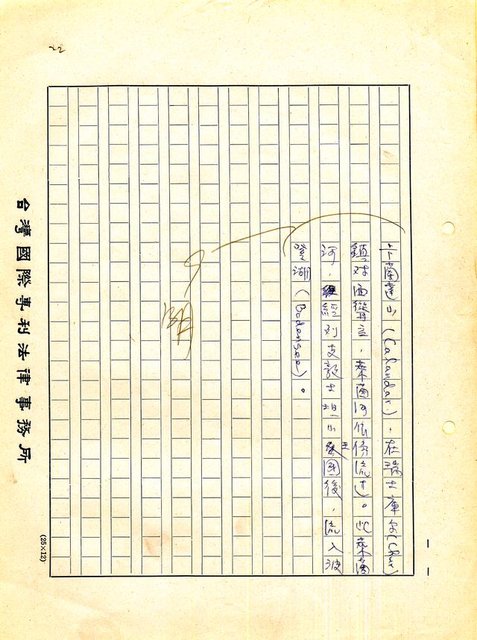 22
卡蘭達山(Calandar)，在瑞士庫爾(Chur)
鎮对面聳立，萊茵河依傍流过。此萊茵
河，經列支敦士坦公王國後，流入波
登湖(Bodensee)。
台灣國際專利法律事務所
(25×12)